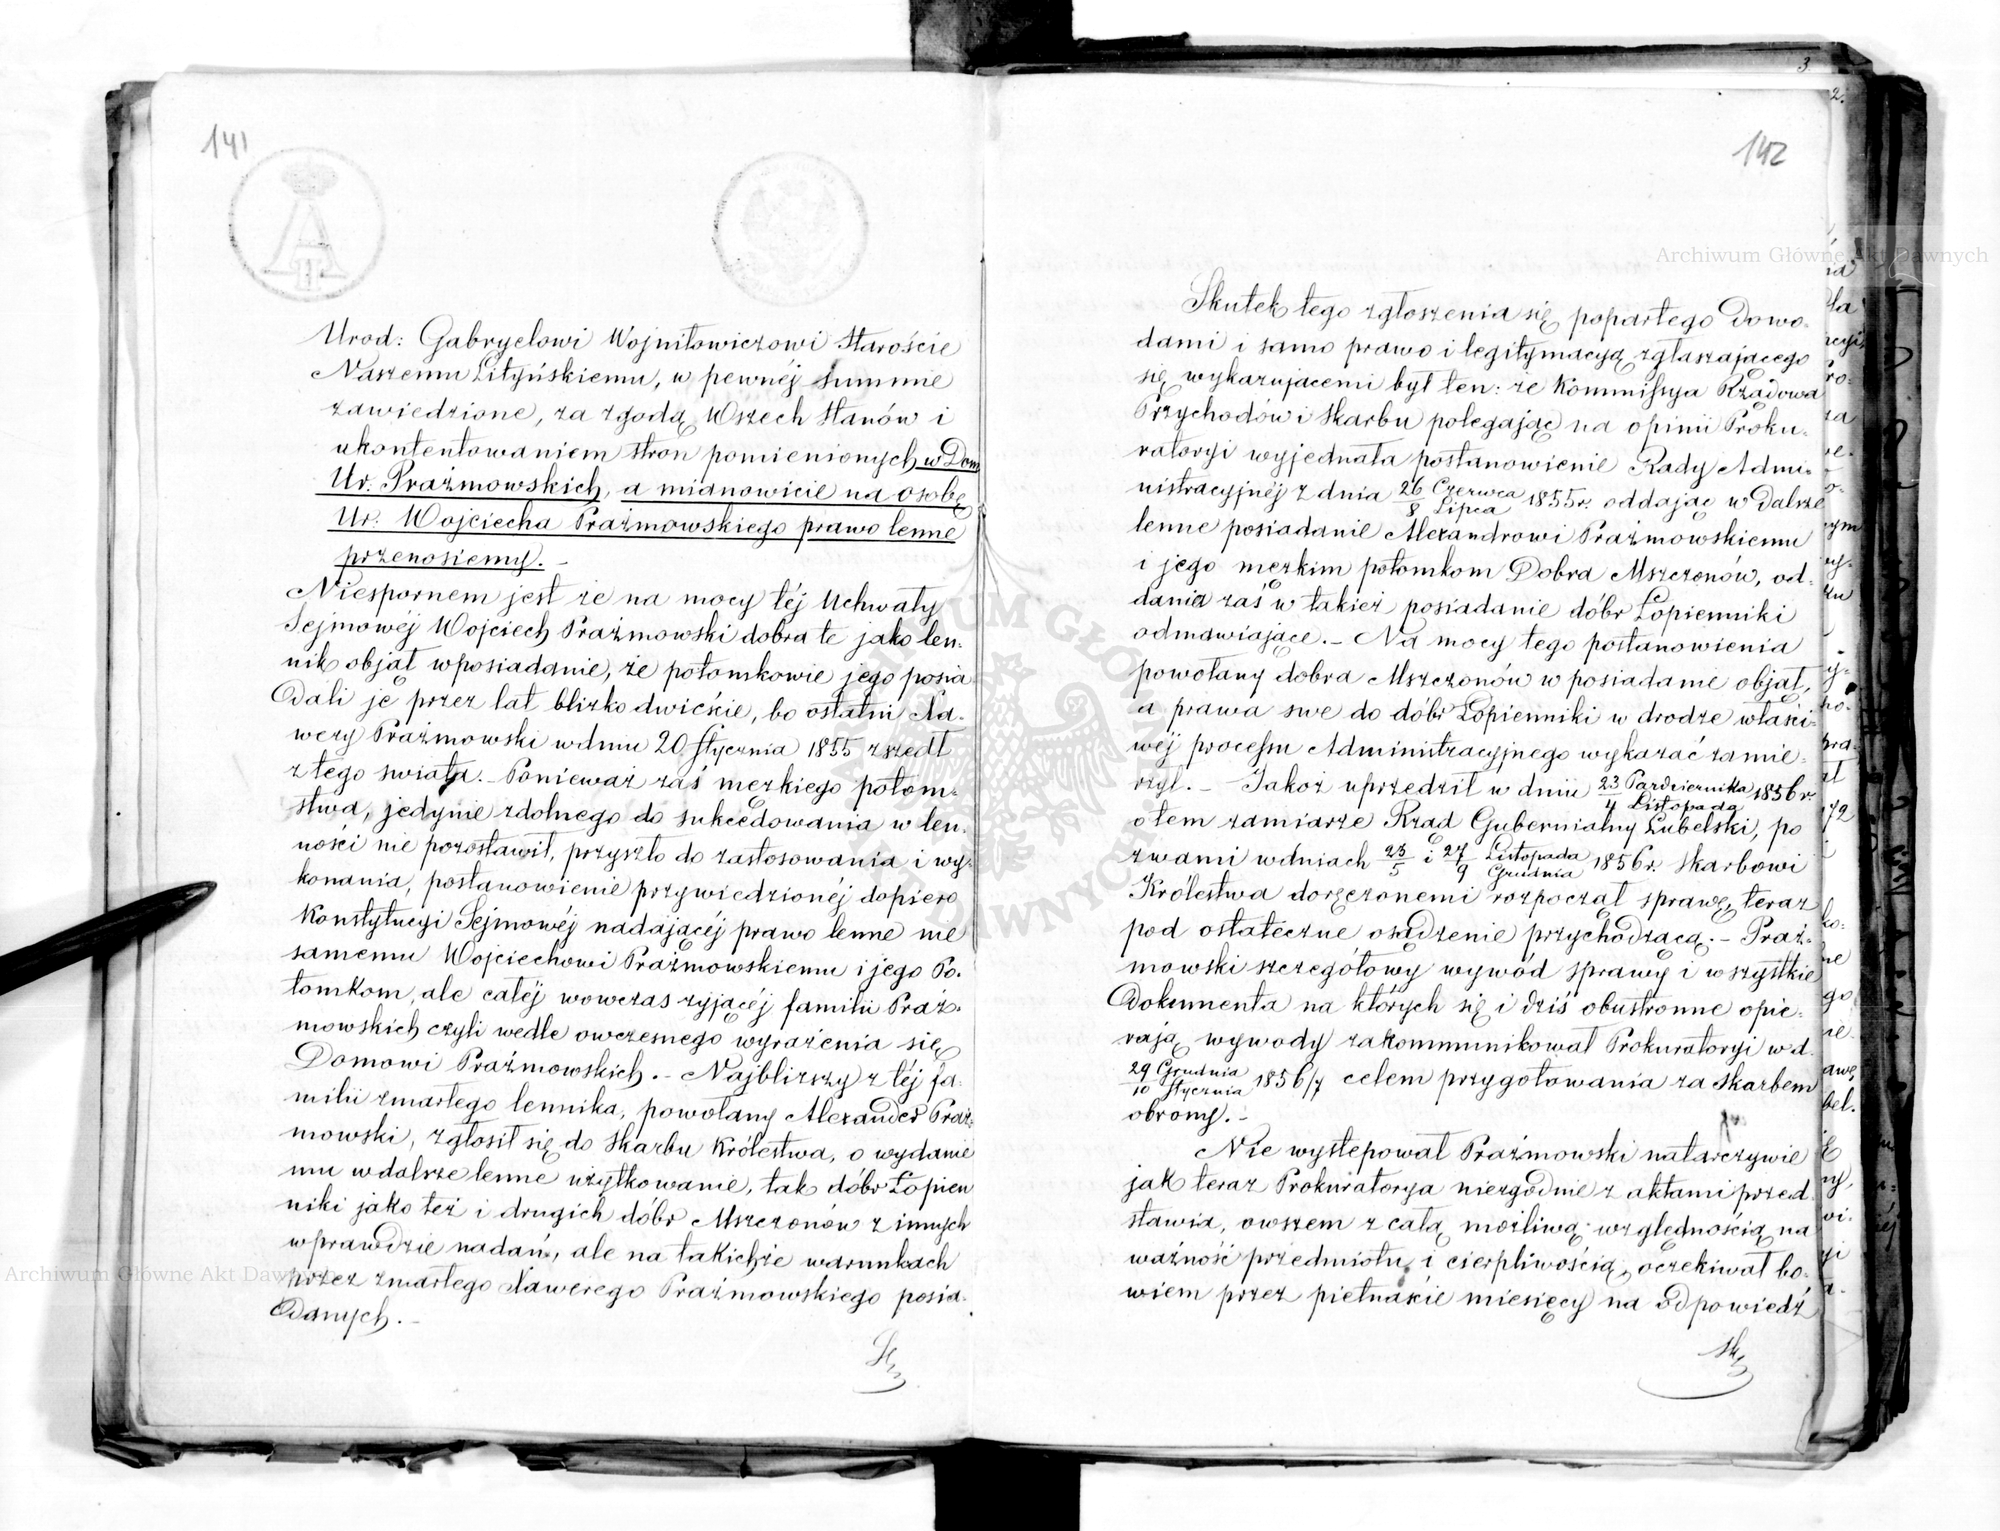 141
Urod: Gabryelowi Wojniłowiczowi Staroście
Naszemu Lityńskiemu, w pewnéj summie
zawiedzione, za zgodą Wszech Stanów i
ukontentowaniem stron pomienionych w Dom
Ur. Prażmowskich, a mianowicie na osobę
Ur. Wojciecha Prażmowskiego prawo lenne
przenosiemy. –
Niespornem jest że na mocy téj Uchwały
Sejmowéj Wojciech Prażmowski dobra te jako len-
nik objął w posiadanie, że potomkowie jego posia
dali je przez lat blizko dwieście, bo ostatni Xa-
wery Prażmowski w dniu 20 Stycznia 1855 zszedł
z tego świata. – Ponieważ zaś męzkiego potom-
stwa, jedynie zdolnego do sukcedowania w len-
ności nie pozostawił, przyszło do zastosowania i wy-
konania, postanowienie przywiedzionéj dopiero
Konstytucyi Sejmowéj nadającéj prawo lenne nie
samemu Wojciechowi Prażmowskiemu i jego Po-
tomkom, ale całéj wówczas żyjącéj familii Praż-
mowskich czyli wedle owczesnego wyrażenia się
Domowi Prażmowskich. – Najbliższy z téj fa-
milii zmarłego lennika, powołany Alexander Praż-
mowski, zgłosił się do Skarbu Królestwa, o wydanie
mu w dalsze lenne użytkowanie, tak dóbr Łopien
niki jako też i drugich dóbr Mszczonów z innych
wprawdzie nadań, ale na takichże warunkach
przez zmarłego Xawerego Prażmowskiego posia-
danych. –
142
Skutek tego zgłoszenia się popartego dowo-
dami i samo prawo i legitymacyą zgłaszającego
się wykazującemi był ten: że Kommissya Rządowa
Przychodów i Skarbu polegając na opinii Proku-
ratoryi wyjednała postanowienie Rady Admi-
nistracyjnéj z dnia 26/8 Czerwca/Lipca 1855 r. oddając w dalsze
lenne posiadanie Alexandrowi Prażmowskiemu
i jego męzkim potomkom Dobra Mszczonów, od-
dania zaś w takież posiadanie dóbr Łopienniki
odmawiające. – Na mocy tego postanowienia
powołany dobra Mszczonów w posiadanie objął,
a prawa swe do dóbr Łopienniki w drodze właści-
wéj processu Administracyjnego wykazać zamie-
rzył. – Jakoż uprzedził w dniu 23/4 Pazdziernika/Listopada 1856 r.
o tem zamiarze Rząd Gubernialny Lubelski, po
zwami w dniach 23/5 i 27/9 Listopada/Grudnia 1856 r. Skarbowi
Królestwa doręczonemi rozpoczął sprawę, teraz
pod ostateczne osądzenie przychodzącą. – Praż-
mowski szczegółowy wywód sprawy i wszystkie
Dokumenta na których się i dziś obustronne opie-
rają wywody zakommunikował Prokuratoryi w d.
29/10 Grudnia/Stycznia 1856/7 celem przygotowania za Skarbem
obrony. –
Nie występował Prażmowski natarczywie
jak teraz Prokuratorya niezgodnie z aktami przed
stawia, owszem z całą możliwą względnością na
ważność przedmiotu i cierpliwością, oczekiwał bo-
wiem przez piętnaście miesięcy na odpowiedź
Archiwum Główne Akt Dawnych
Archiwum Główne Akt Dawnych